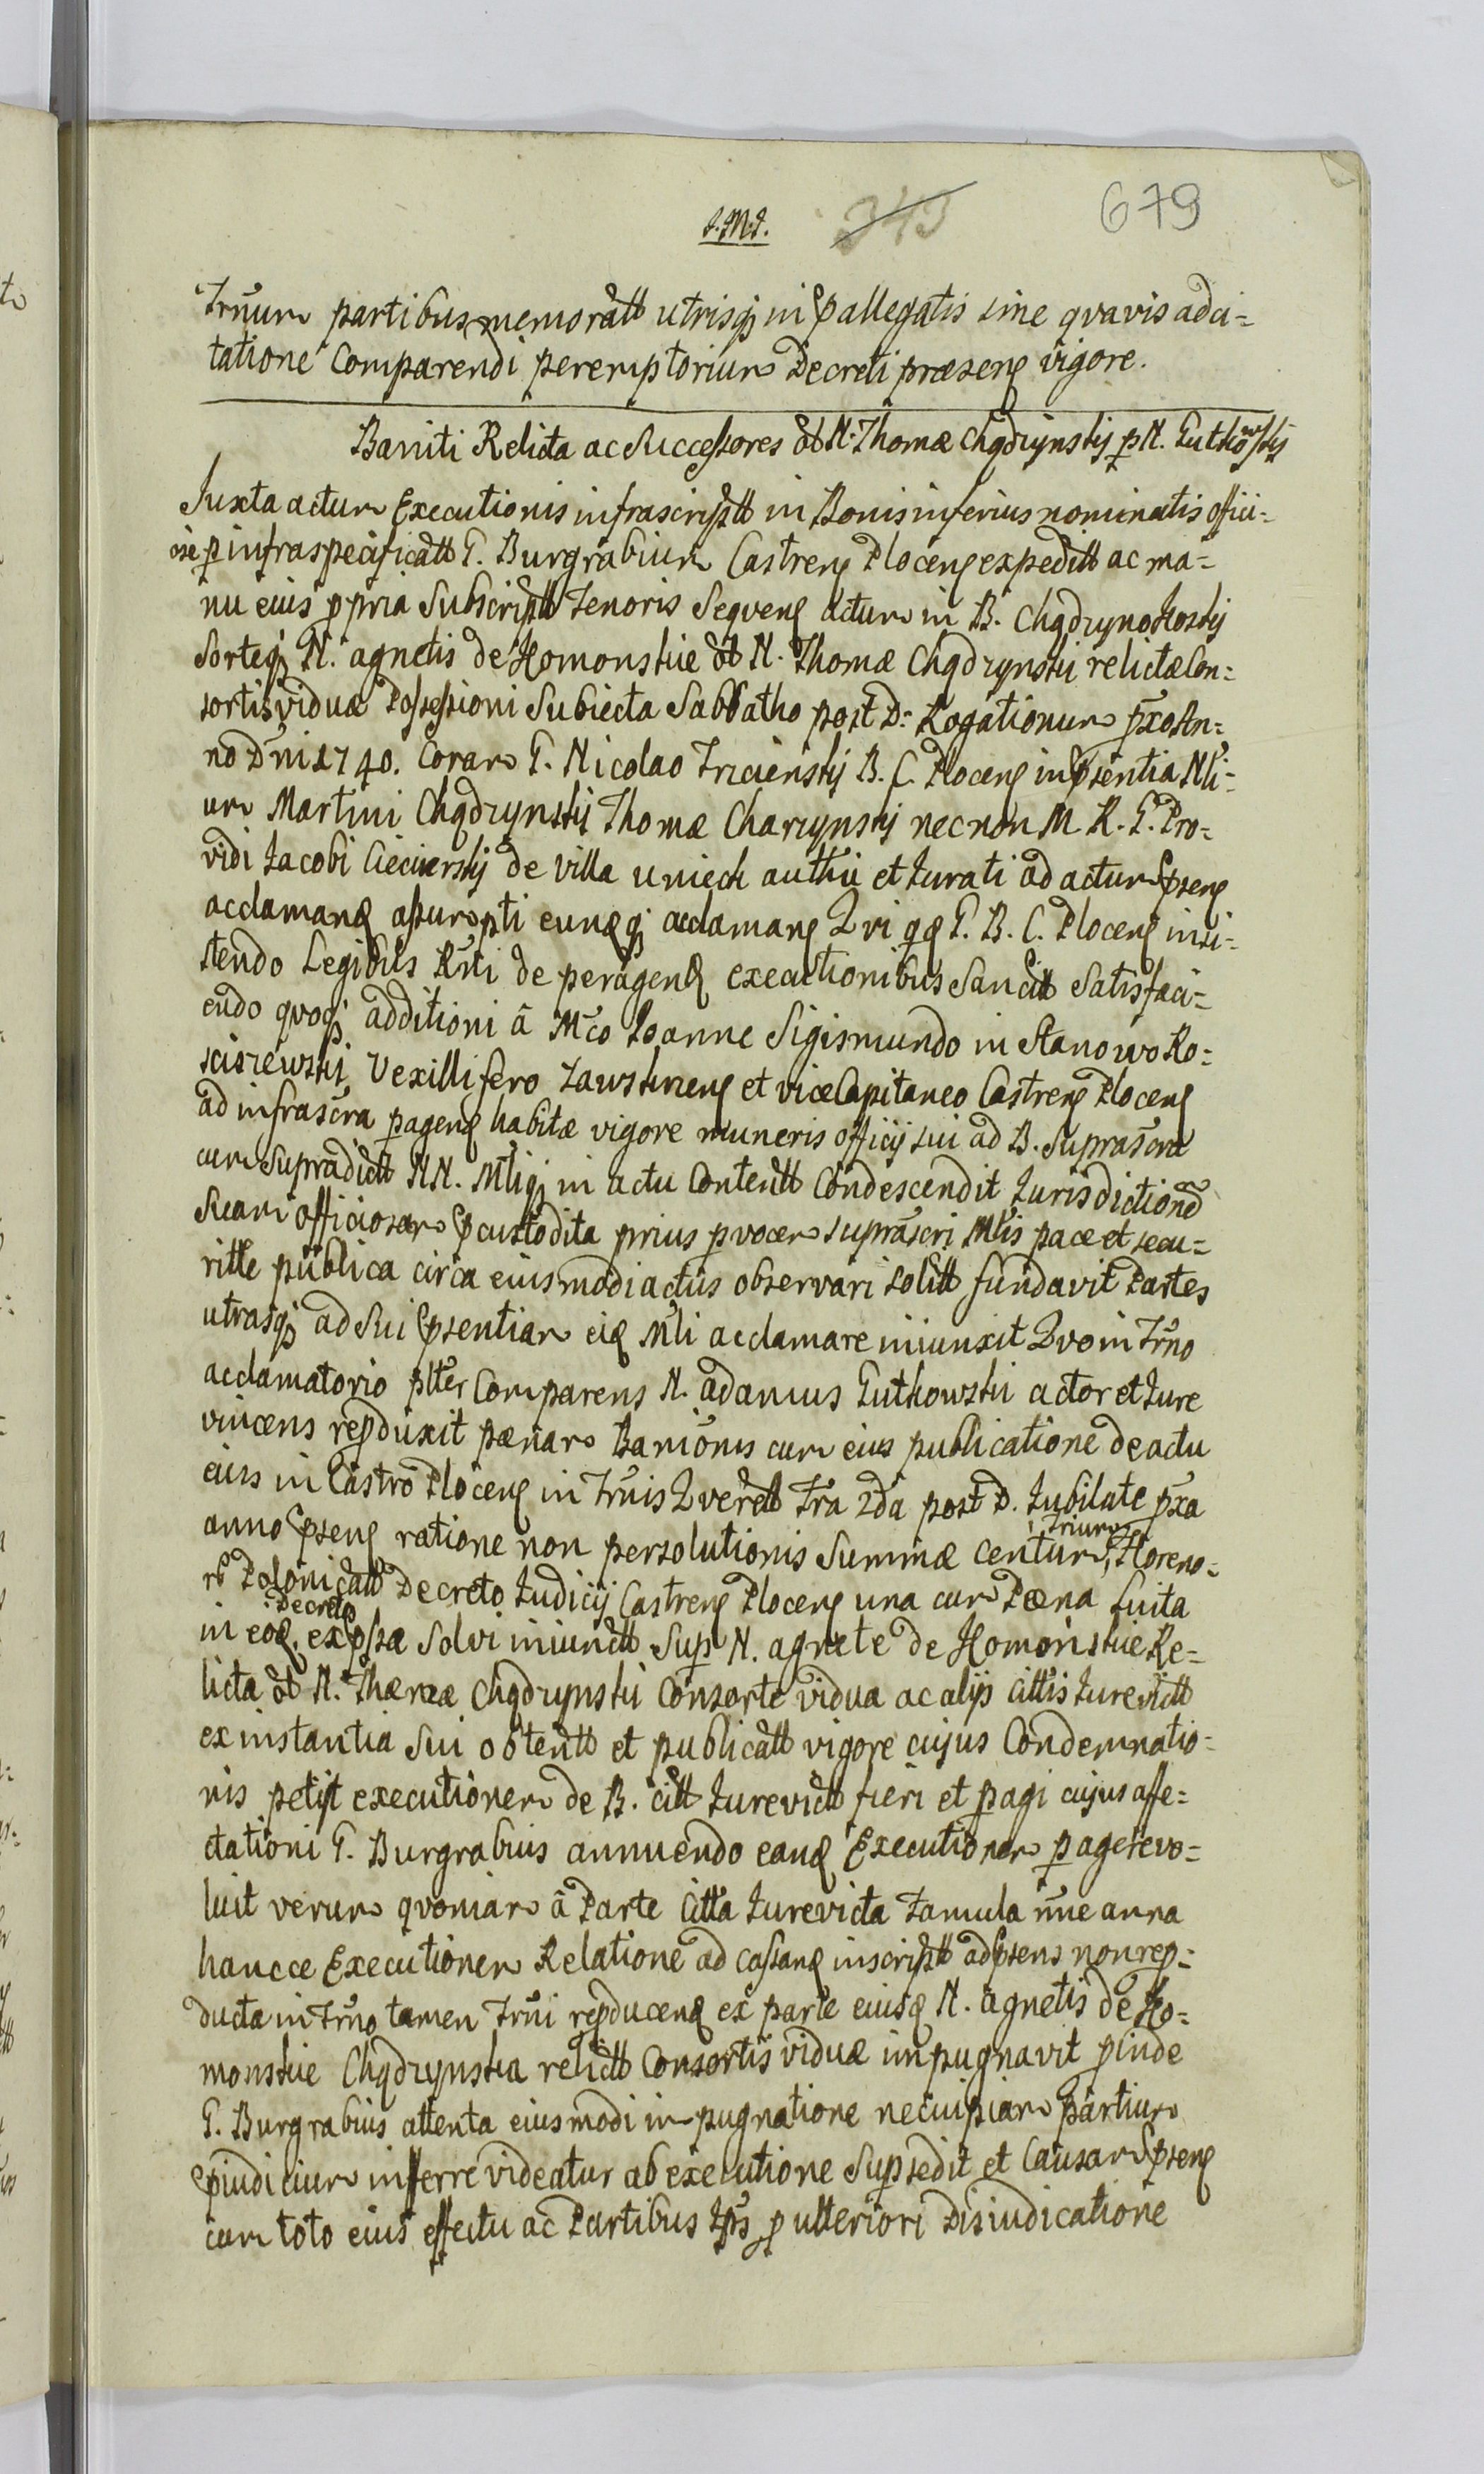 J.M.J. 343 679
Trnum partibus memoratt utrisq; in pallegatis sine qvavis adci=
tatione Comparendi peremptorium Decreti præsens vigore.
Baniti Relicta ac Successores ol N. Thomæ Chądzynskij p N. Gutkowskij
Juxta actum Executionis infrascriptt in Bonis inferius nominatis offici=
ose p infraspecificatt G. Burgrabium Castrens Plocens expeditt ac ma=
nu eius ppria Subscriptt Tenoris Seqvens actum in B. Chądzyno Kostij
Sorteq; N. agnetis de Homonskie ol N. Thomæ Chądzynskii relictæ Con=
sortis viduæ Possessioni Subiecta Sabbatho post D: Rogationum pxo An=
no Dni 1740. Coram G. Nicolao Trzcienskij B. C. Plocens in psentia Nli=
um Martini Chądzynskij Thomæ Charzynskij necnon M. R. G. Pro=
vidi Jacobi Cieciierskij de villa unieck autthii et Jurati ad actum psens
acclamand assumpti eundq; acclamans Qvi qd G. B. C. Plocens insi=
stendo Legibus Rni de peragend executionibus Sancitt Satisfaci=
endo quoq; additioni â Mco Joanne Sigismundo in Stanowo Ko=
sciszewskij Vexillifero Zawskrzens et vice Capitaneo Castrens Plocens
ad infrascra pagend habitæ vigore muneris officij sui ad B. Suprascra
cum Supradictt NN. Mliq; in actu Contentt Condescendit Jurisdictione
Suam officiosam pcustodita prius p vocem suprascri Mlis pace et secu=
ritte publica circa eiusmodi actus observari solitt fundavit Partes
utrasq; ad Sui psentiam eid Mli acclamare iniunxit Qvo in Trno
acclamatorio plter Comparens N. adamus Gutkowskii actor et Jure
vincens repduxit pænam Banionis cum eius publicatione de actu
eius in Castro Plocens in Trnis Qverett Fra 2da post D. Jubilate pxa
anno psens ratione non persolutionis Summæ Centum Trium Floreno=
r Polonicatt Decreto Judicij Castrens Plocens una cum Pæna Luita
in eod Decreto expssa Solvi iniunctt Sup N. agnete de Homonskie Re=
licta ol N. Thomæ Chądzynskii Consorte vidua ac alijs cittis Jurevictt
ex instantia Sui obtentt et publicatt vigore cujus Condemnatio=
nis petijt executionem de B. citt Jurevictt fieri et pagi cujus affe=
ctationi G. Burgrabius annuendo eand Executionem pagere vo=
luit verum qvoniam â Parte Citta Jurevicta Famula nne anna
hancce Executionem Relatione ad Cassand inscriptt ad psens non rep=
ducta in Trno tamen Trni repducend ex parte eiusd N. agnetis de Ho=
monskie Chądzynska relictt Consortis viduæ impugnavit pinde
G. Burgrabius attenta eiusmodi impugnatione ne cuipiam partium
piudicium inferre videatur ab executione Supsedit et Causam psens
cum toto eius effectu ac Partibus Jps p ulteriori Disiudicatione